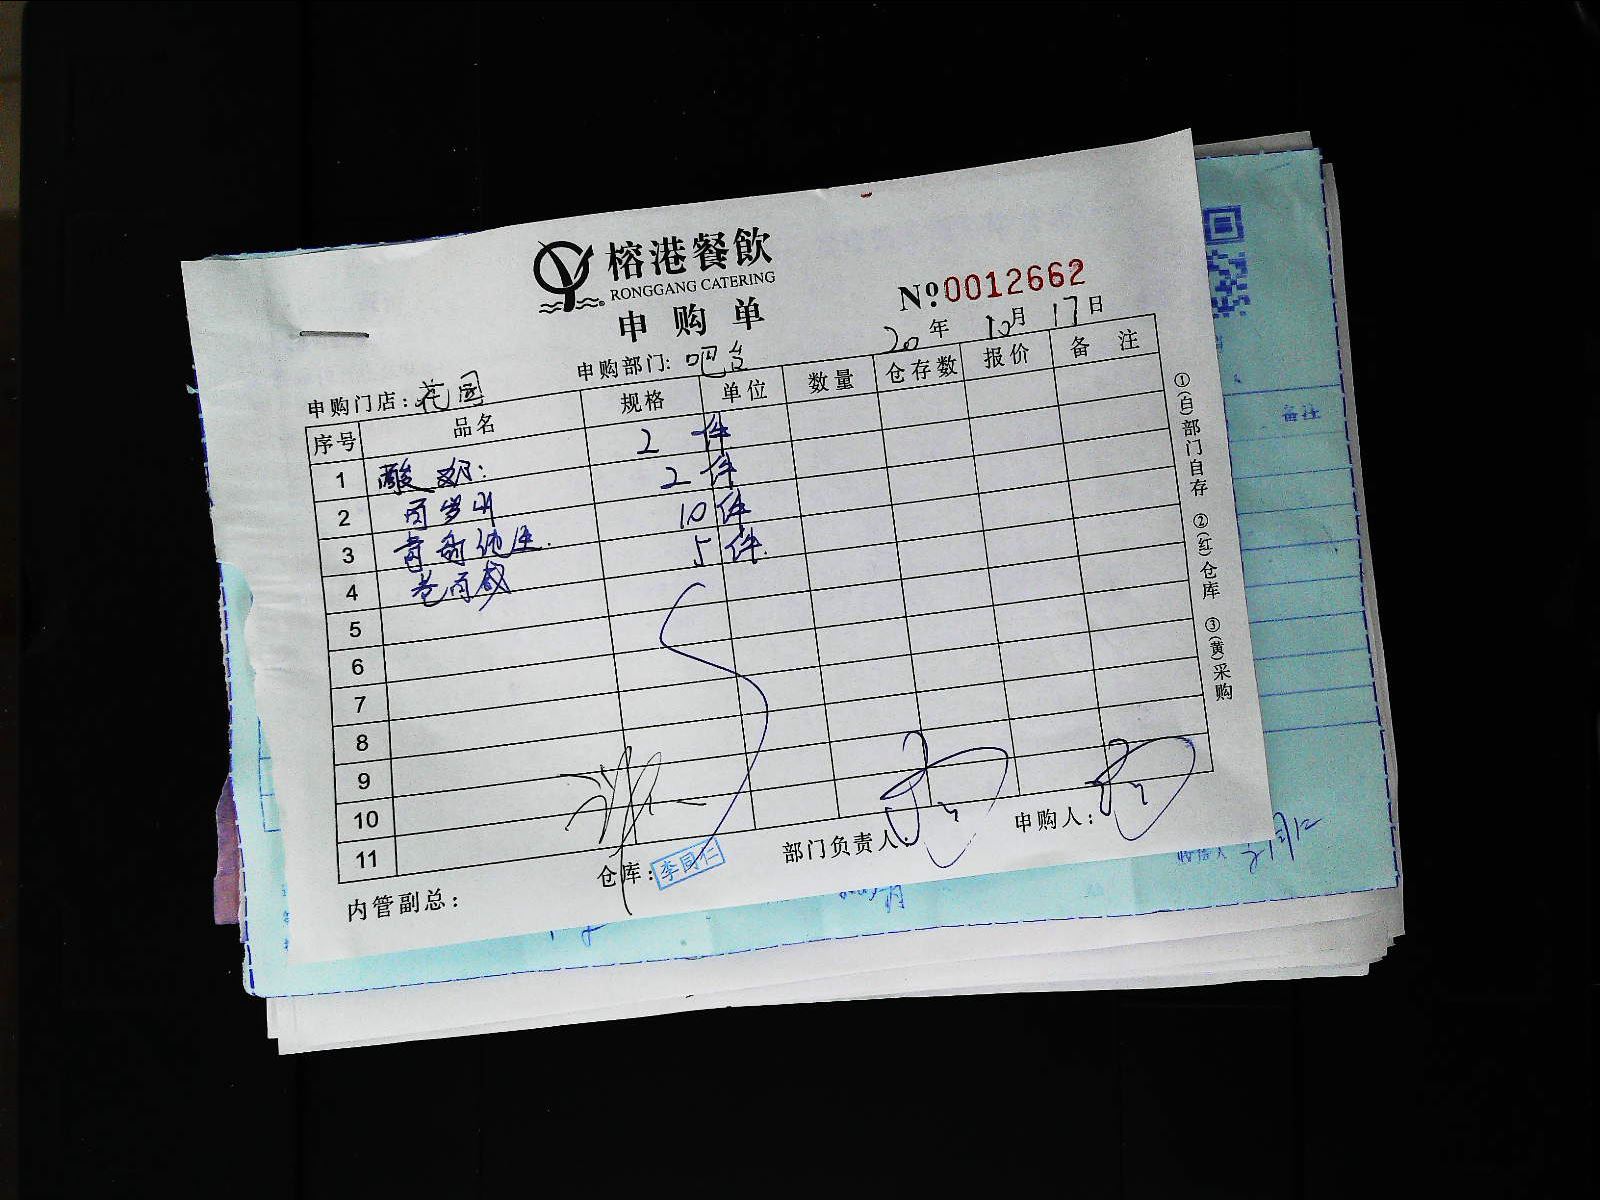 榕港餐飲
RONGGANG CATERING
申购单
№ 0012662
20年 10月 17日
申购门店:花园 申购部门:吧台
序号 品名 规格 单位 数量 仓存数 报价 备注
1 酸奶: 2 件
2 百岁山 2 件
3 青岛纯生 10 件
4 老百威 5 件
5
6
7
8
9
10
11
内管副总: 仓库: 李同仁 部门负责人: 申购人:
①(白)部门自存 ②(红)仓库 ③(黄)采购
备注